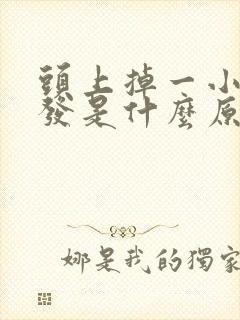 頭上掉一小
發是什麼原
娜是我的獨家